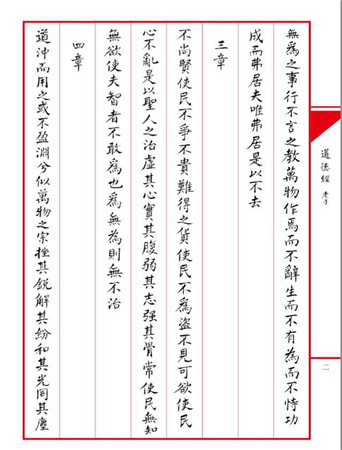 道德經 老子
二
無為之事行不言之教萬物作焉而不辭生而不有為而不恃功
成而弗居夫唯弗居是以不去
三章
不尚賢使民不爭不貴難得之貨使民不為盜不見可欲使民
心不亂是以聖人之治虛其心實其腹弱其志强其骨常使民無知
無欲使夫智者不敢為也為無為則無不治
四章
道沖而用之或不盈淵兮似萬物之宗挫其銳解其紛和其光同其塵